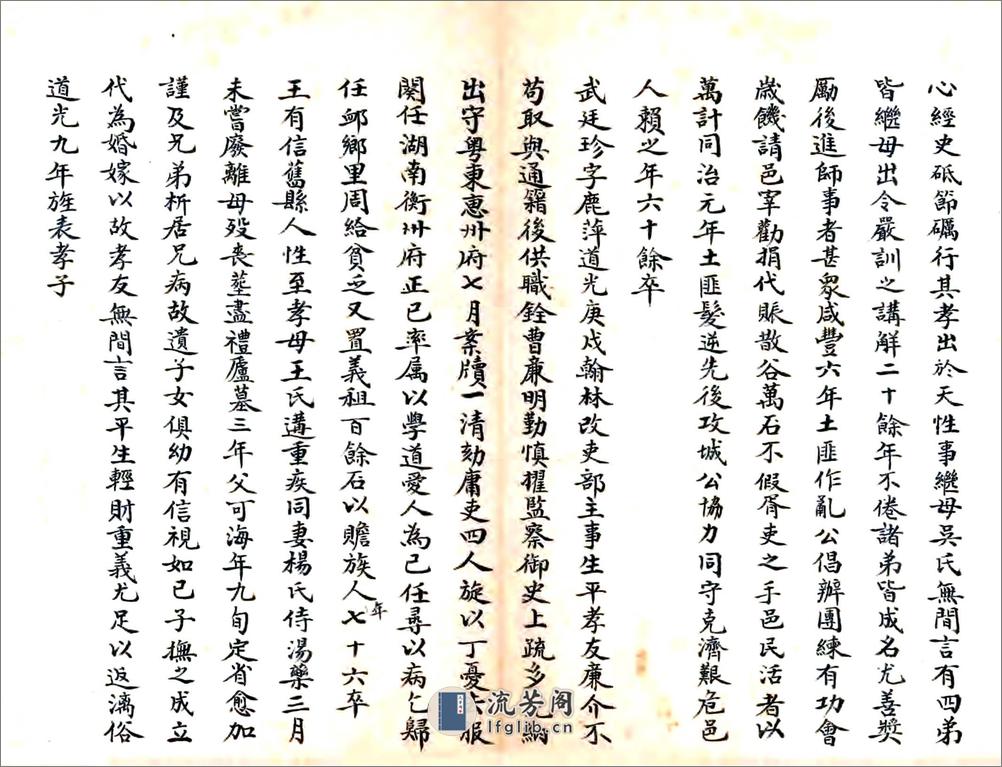 心經史砥節礪行其孝出於天性事繼母吳氏無間言有四弟
皆繼母出令嚴訓之講解二十餘年不倦諸弟皆成名尤善獎
勵後進師事者甚眾咸豐六年土匪作亂公倡辦團練有功會
歲饑請邑宰勸捐代賑散谷萬石不假胥吏之手邑民活者以
萬計同治元年土匪髮逆先後攻城公協力同守克濟艱危邑
人賴之年六十餘卒
武廷珍字鹿萍道光庚戌翰林改吏部主事生平孝友廉介不
苟取與通籍後供職銓曹廉明勤慎擢監察御史上疏多
出守粵東惠州府七月案牘一清劾庸吏四人旋以丁憂服
闋任湖南衡州府正己率属以學道愛人為己任尋以病乞歸
任卹鄉里周給貧乏又置義租百餘石以贍族人年七十六卒
王有信舊縣人性至孝母王氏遘重疾同妻楊氏侍湯藥三月
未嘗廢離母歿喪葬盡禮廬墓三年父可海年九旬定省愈加
謹及兄弟析居兄病故遺子女俱幼有信視如己子撫之成立
代為婚嫁以故孝友無間言其平生輕財重義尤足以返漓俗
道光九年旌表孝子
流芳阁
lfglib.cn